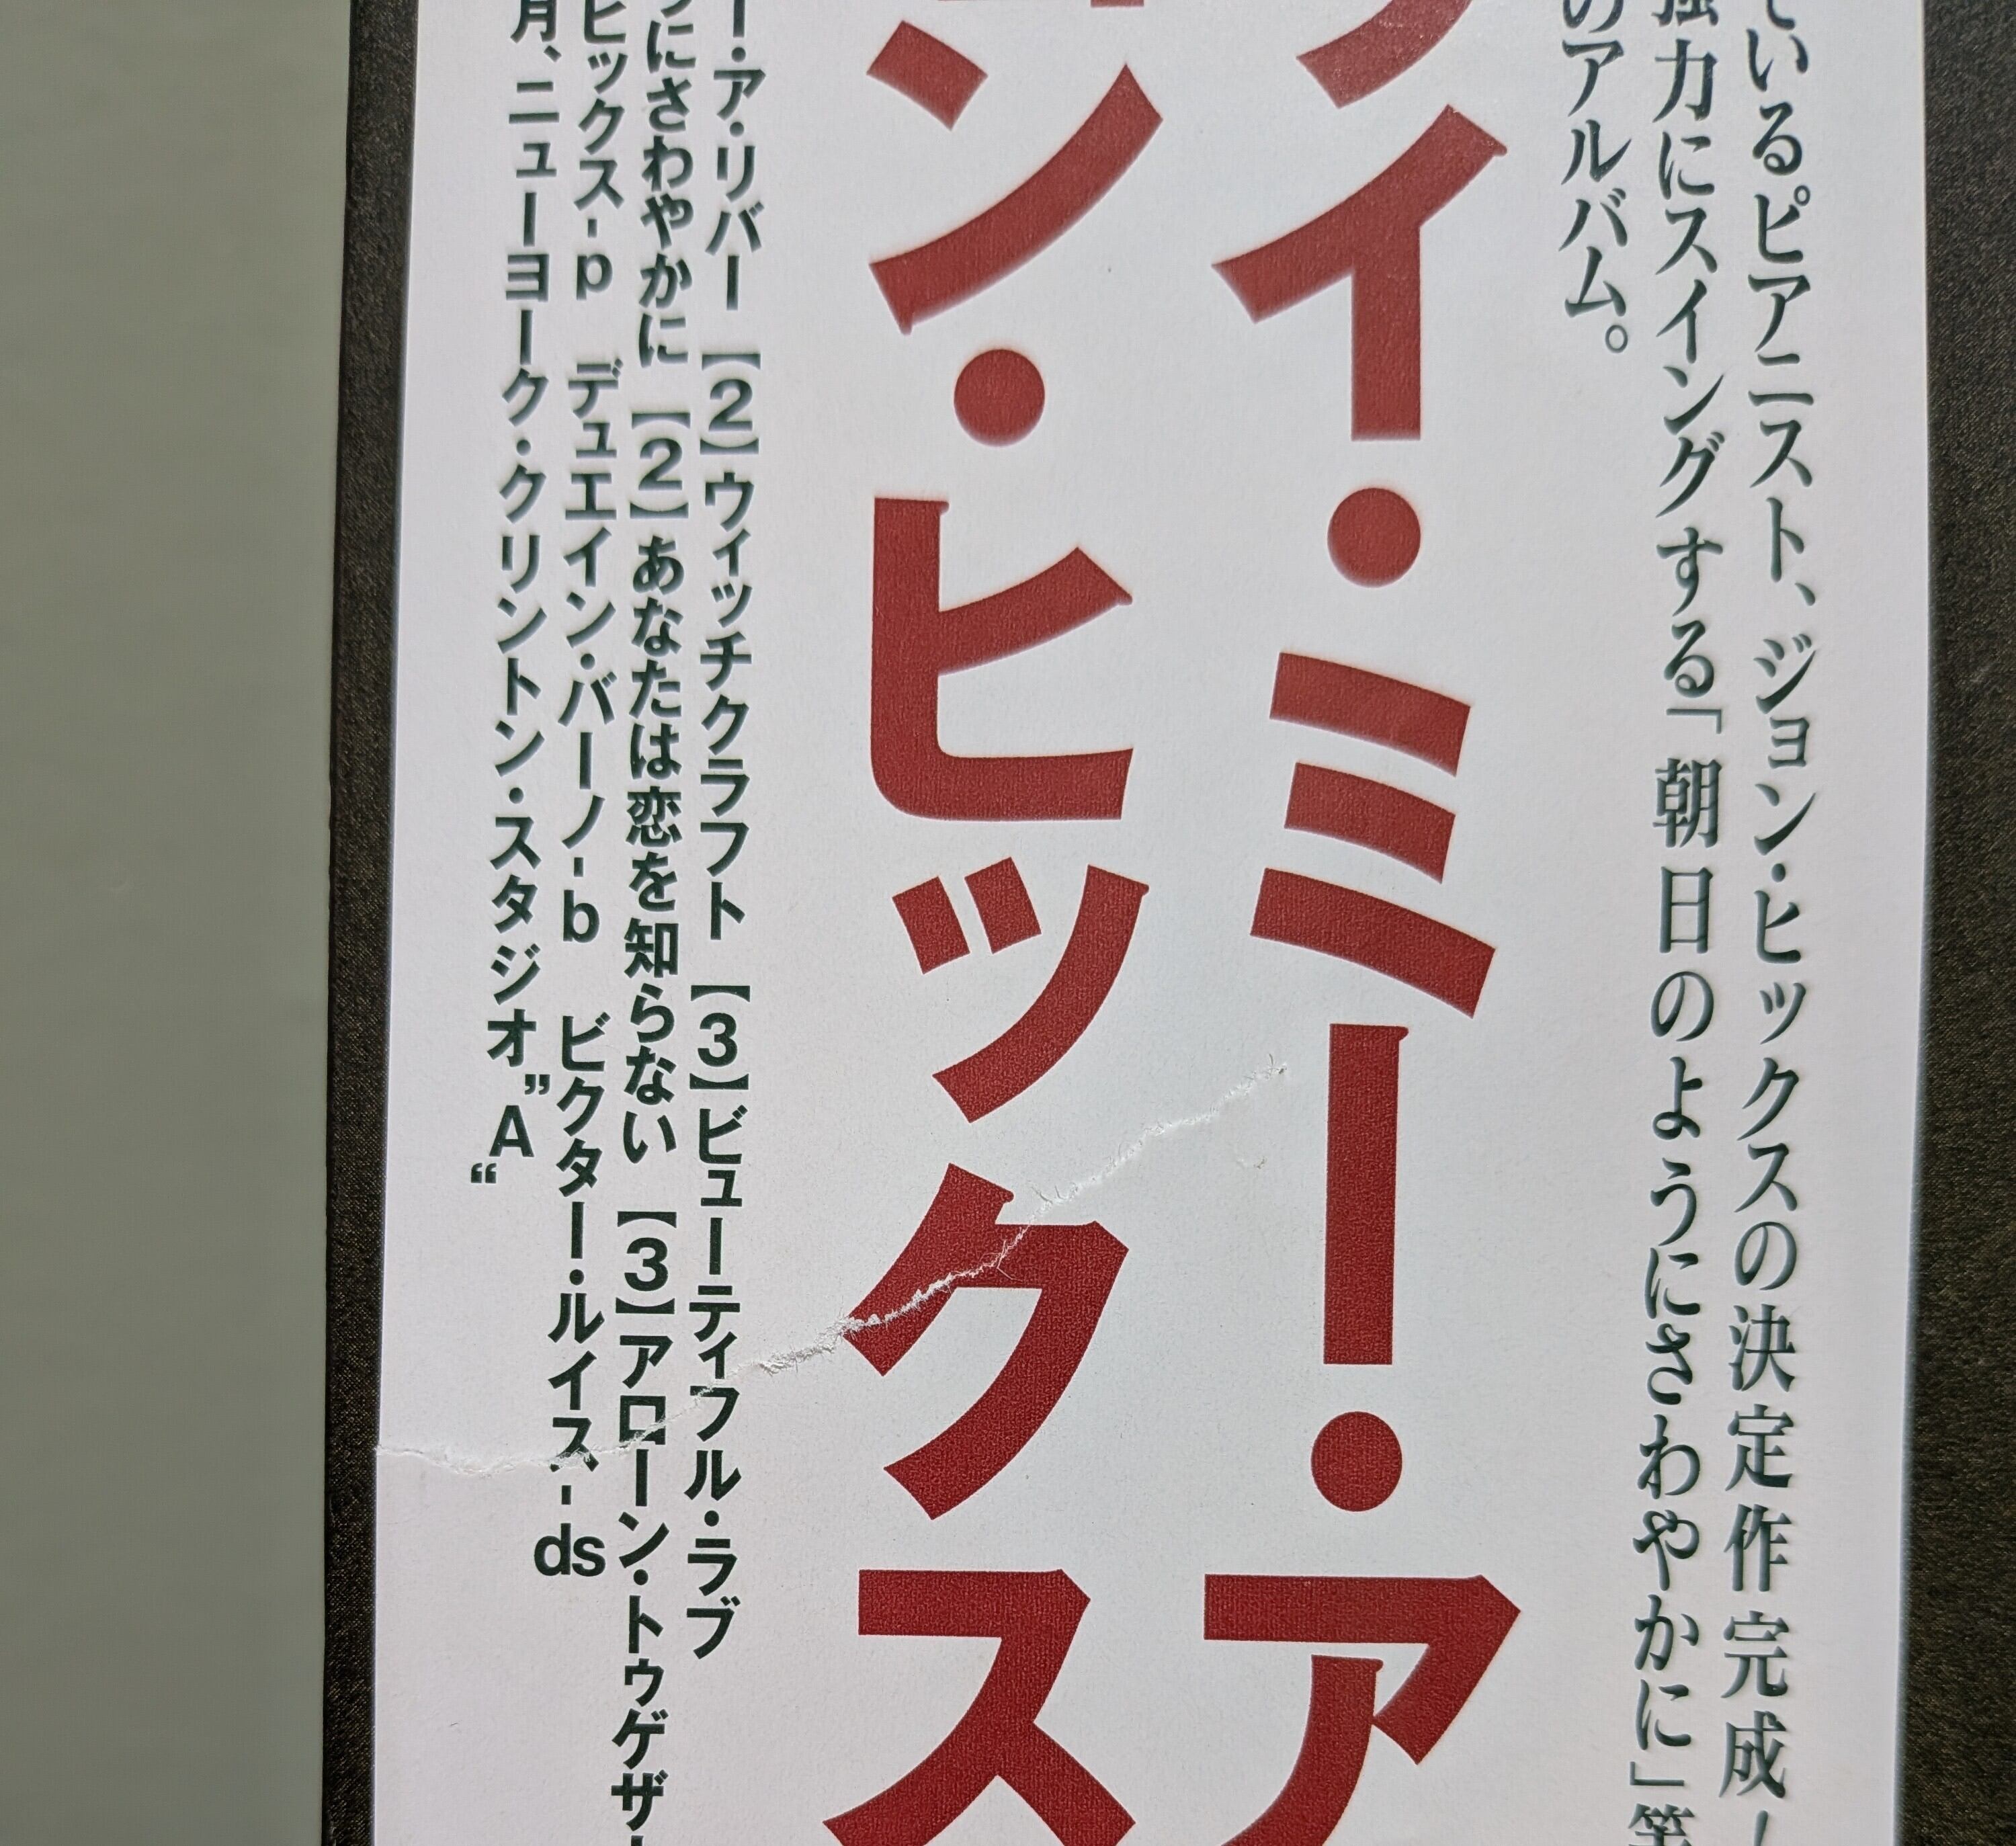 ているピアニスト、ジョン・ヒックスの決定作完成!
強力にスイングする「朝日のようにさわやかに」等
のアルバム。
イ・ミー・ア
ン・ヒックス
ー・ア・リバー 【2】ウィッチクラフト 【3】ビューティフル・ラブ
うにさわやかに 【2】あなたは恋を知らない 【3】アローン・トゥゲザー
ヒックス-p デュエイン・バーノ-b ビクター・ルイス-ds
月、ニューヨーク・クリントン・スタジオ”A“